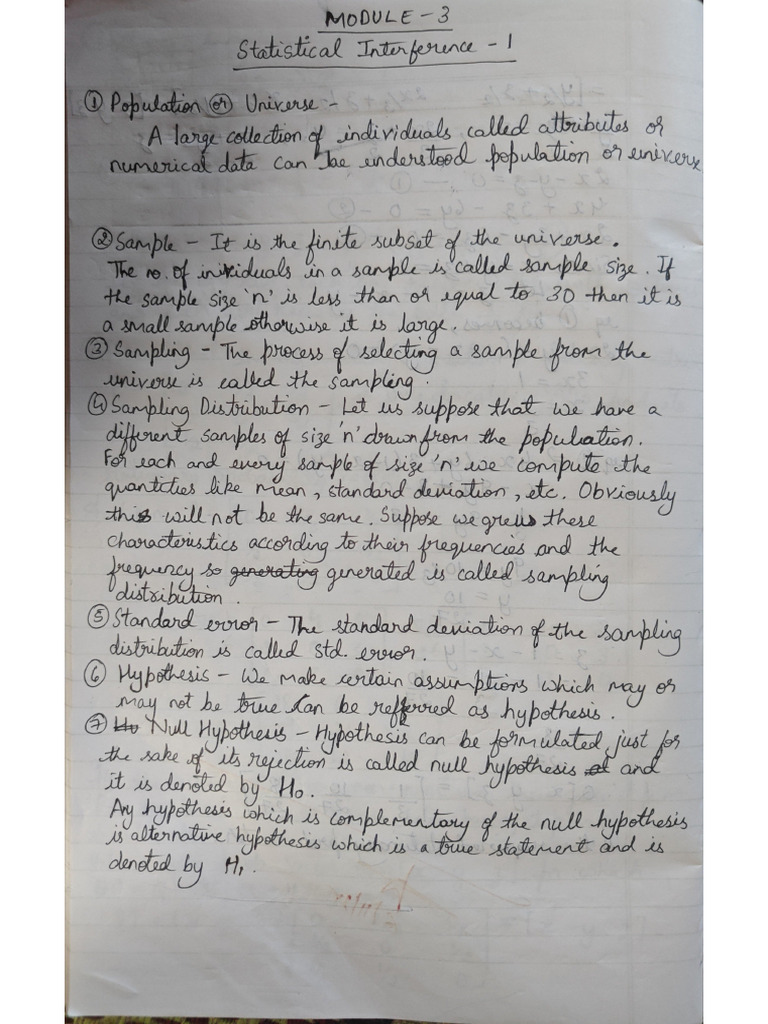 MODULE - 3
Statistical Interference - 1
① Population or Universe -
A large collection of individuals called attributes or
numerical data can be understood population or universe
② Sample - It is the finite subset of the universe.
The no. of inividuals in a sample is called sample size. If
the sample size 'n' is less than or equal to 30 then it is
a small sample otherwise it is large.
③ Sampling - The process of selecting a sample from the
universe is called the sampling.
④ Sampling Distribution - Let us suppose that we have a
different samples of size 'n' drawn from the population.
For each and every sample of size 'n' we compute the
quantities like mean, standard deviation, etc. Obviously
this will not be the same. Suppose we these
characteristics according to their frequencies and the
frequency so generating generated is called sampling
distribution.
⑤ Standard error - The standard deviation of the sampling
distribution is called std. error.
⑥ Hypothesis - We make certain assumptions which may or
may not be true can be refferred as hypothesis.
⑦ Ho Null Hypothesis - Hypothesis can be formulated just for
the sake of its rejection is called null hypothesis and
it is denoted by H₀.
Ay hypothesis which is complementary of the null hypothesis
is alternative hypothesis which is a true statement and is
denoted by H₁.